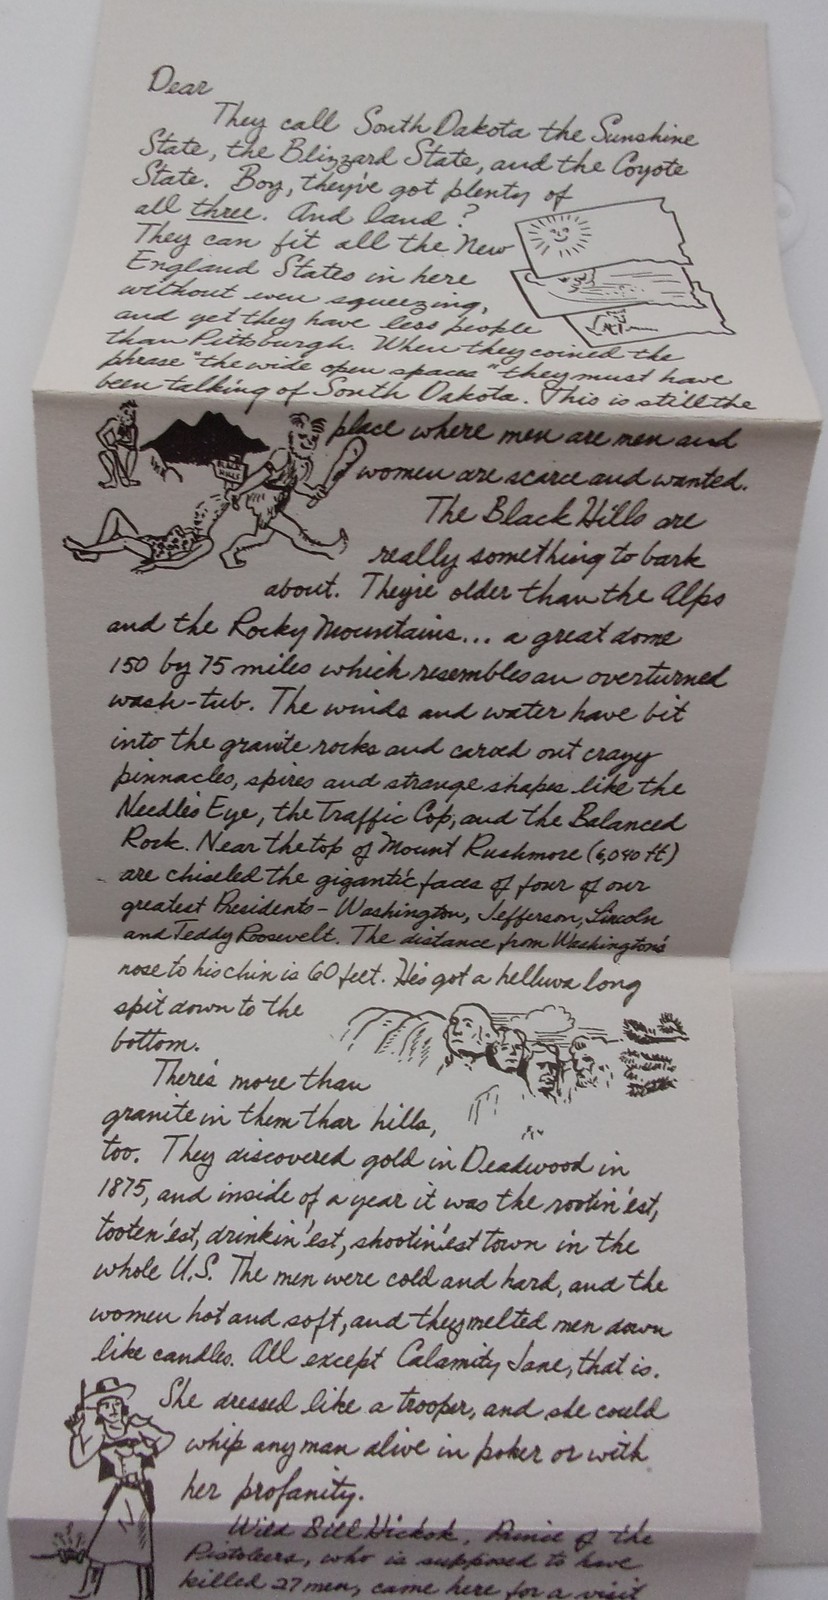 Dear
They call South Dakota the Sunshine
State, the Blizzard State, and the Coyote
State. Boy, they've got plenty of
all three. And land?
They can fit all the New
England States in here
without even squeezing,
and yet they have less people
than Pittsburgh. When they coined the
phrase "the wide open spaces" they must have
been talking of South Dakota. This is still the
place where men are men and
women are scarce and wanted.
BLACK HILLS
The Black Hills are
really something to bark
about. They're older than the Alps
and the Rocky Mountains... a great dome
150 by 75 miles which resembles an overturned
wash-tub. The winds and water have bit
into the granite rocks and carved out crazy
pinnacles, spires and strange shapes like the
Needle's Eye, the Traffic Cop, and the Balanced
Rock. Near the top of Mount Rushmore (6,040 ft)
are chiseled the gigantic faces of four of our
greatest Presidents - Washington, Jefferson, Lincoln
and Teddy Roosevelt. The distance from Washington's
nose to his chin is 60 feet. He's got a helluva long
spit down to the
bottom.
There's more than
granite in them thar hills,
too. They discovered gold in Deadwood in
1875, and inside of a year it was the rootin'est,
tooten'est, drinkin'est, shootin'est town in the
whole U.S. The men were cold and hard, and the
women hot and soft, and they melted men down
like candles. All except Calamity Jane, that is.
She dressed like a trooper, and she could
whip any man alive in poker or with
her profanity.
Wild Bill Hickok, Prince of the
Pistoleers, who is supposed to have
killed 27 men, came here for a visit